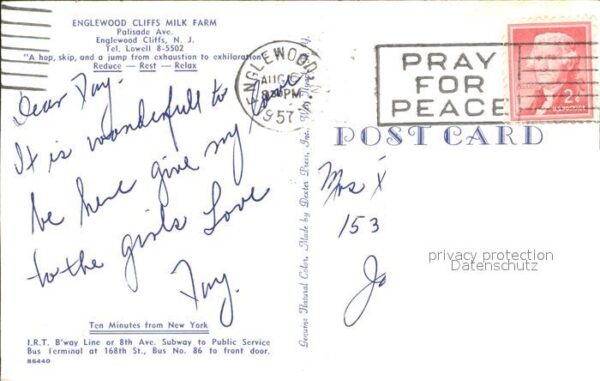 ENGLEWOOD CLIFFS MILK FARM
Palisade Ave.
Englewood Cliffs, N. J.
Tel. Lowell 8-5502
"A hop, skip, and a jump from exhaustion to exhilaration"
Reduce — Rest — Relax
Dear Fay.
It is wonderfull to
be here give my love
to the girls Love
Fay.
Ten Minutes from New York
I.R.T. B'way Line or 8th Ave. Subway to Public Service
Bus Terminal at 168th St., Bus No. 86 to front door.
86440
Genuine Natural Color. Made by Dexter Press, Inc.
ENGLEWOOD
AUG
PM
1957
PRAY
FOR
PEACE
2¢
U.S. POSTAGE
POST CARD
Mrs
153
privacy protection
Datenschutz